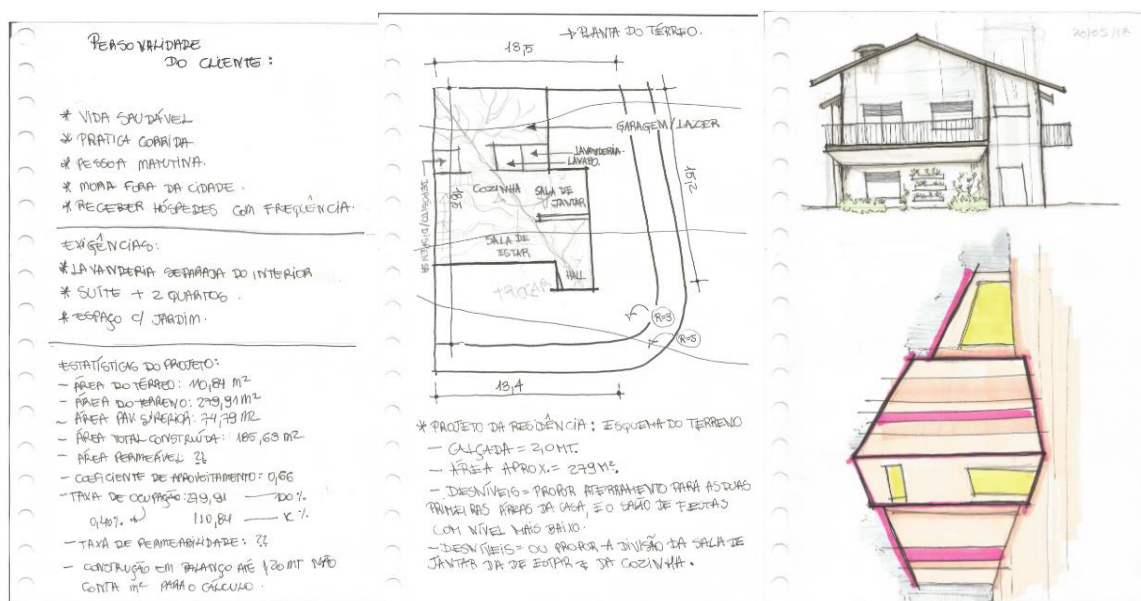 PERSONALIDADE
DO CLIENTE:
* VIDA SAUDÁVEL
* PRATICA CORRIDA
* PESSOA MATUTINA.
* MORA FORA DA CIDADE.
* RECEBER HÓSPEDES COM FREQUÊNCIA.
EXIGÊNCIAS:
* LAVANDERIA SEPARADA DO INTERIOR
* SUÍTE + 2 QUARTOS.
* ESPAÇO C/ JARDIM.
ESTATÍSTICAS DO PROJETO:
- ÁREA DO TÉRREO: 110,84 M²
- ÁREA DO TERRENO: 279,91 M²
- ÁREA PAV. SUPERIOR: 74,79 M2
- ÁREA TOTAL CONSTRUÍDA: 185,63 M2
- ÁREA PERMEÁVEL ??
- COEFICIENTE DE APROVEITAMENTO: 0,66
- TAXA DE OCUPAÇÃO: 279,91 — 100%
0,40% 110,84 — X %
- TAXA DE PERMEABILIDADE: ??
- CONSTRUÇÃO EM BALANÇO ATÉ 1,20 MT NÃO
CONTA m² PARA O CÁLCULO.
→ PLANTA DO TÉRREO.
13,5
GARAGEM/LAZER
LAVANDERIA
LAVABO.
DEPOSITO/DISPENSA
COZINHA
SALA DE
JANTAR
15,2
SALA DE
ESTAR
HALL
R=3
R=5
13,4
* PROJETO DA RESIDÊNCIA: ESQUEMA DO TERRENO
- CALÇADA = 2,0 MT.
- ÁREA APROX. = 279 M².
- DESNÍVEIS = PROPOR ATERRAMENTO PARA AS DUAS
PRIMEIRAS ÁREAS DA CASA, E O SALÃO DE FESTAS
COM NÍVEL MAIS BAIXO.
- DESNÍVEIS = OU PROPOR A DIVISÃO DA SALA DE
JANTAR DA DE ESTAR E DA COZINHA.
20/05/18